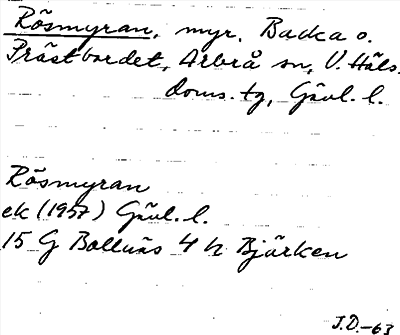 Rösmyran, myr, Backa o.
Prästbordet, Arbrå sn, V. Häls.
doms. tg, Gävl. l.
Rösmyran
ek (1957) Gävl. l.
15 G Bollnäs 4 h Bjärken
J.D.-63